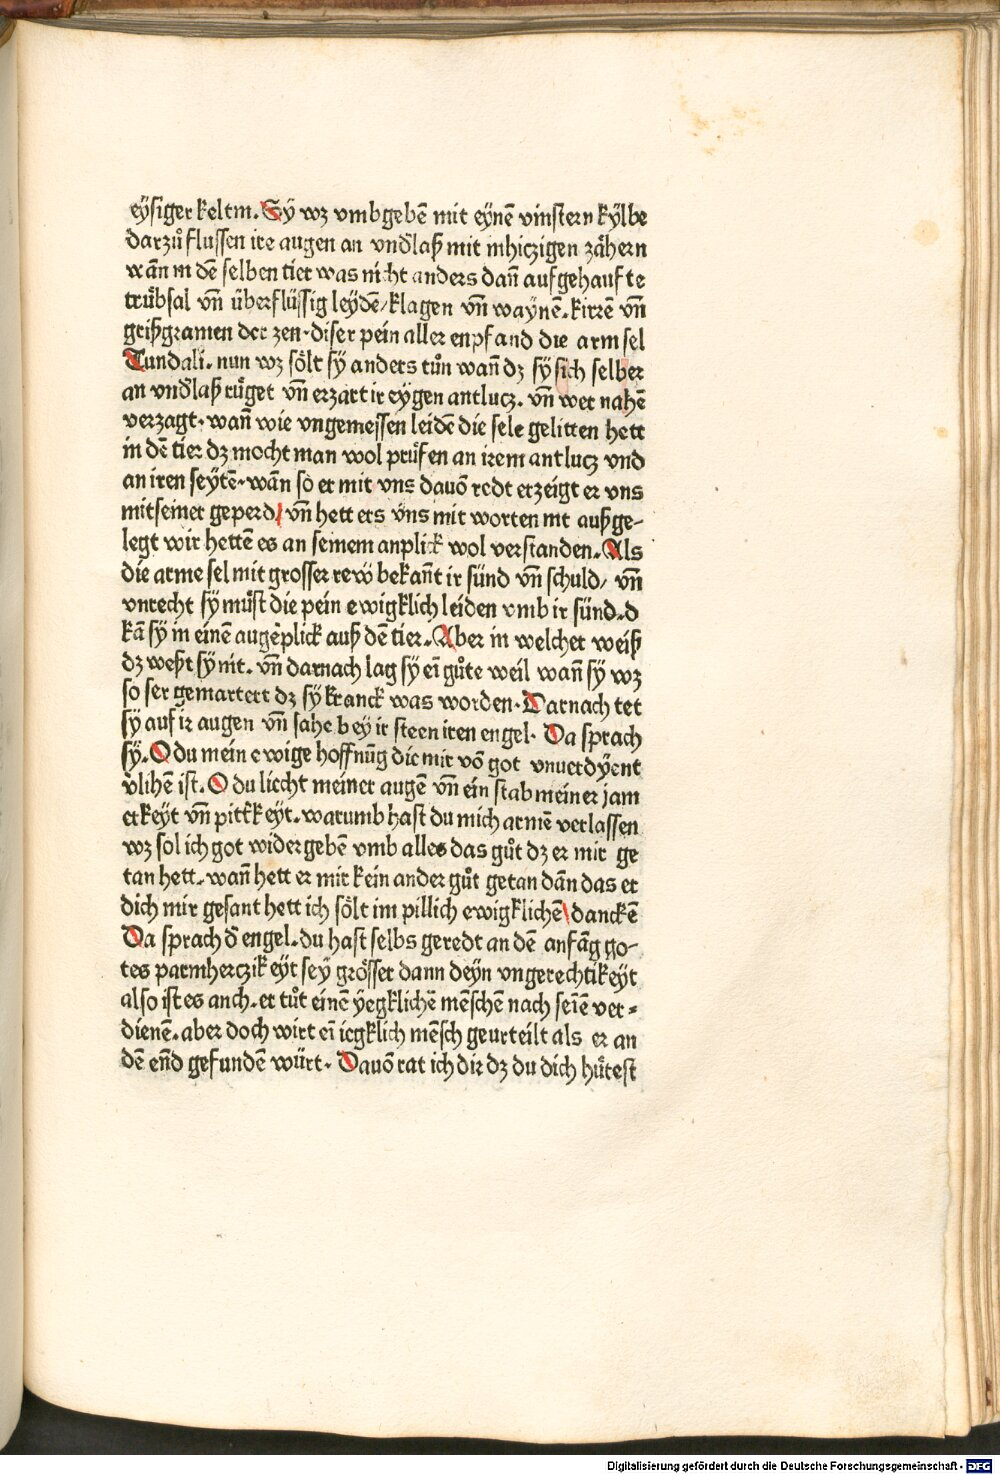 eÿsiger keltin. Sÿ wz vmbgebē mit eÿnē vinstern kÿlbe
darzů flussen ire augen an vnd̕laß mit inhiczigen zähern
wañ in dē selben tier was nicht anders dañ aufgehaufte
trübsal vñ überflüssig leÿdē/ klagen vñ waÿnē. kirrē vñ
grißgramen der zen. diser pein aller enpfand die arm sel
Tundali. nun wz sölt sÿ anders tůn wañ dz sÿ sich selber
an vnd̕laß rüget vñ erzart ir eÿgen antlucz. vñ wer nahē
verzagt. wañ wie vngemessen leidē die sele gelitten hett
in dē tier dz mocht man wol prüfen an irem antlucz vnd
an iren seÿtē. wān so er mit vns dauō redt erzeigt er vns
mit seiner geperd/ vñ hett ers vns mit worten nit außge-
legt wir hettē es an seinem anplick wol verstanden. Als
die arme sel mit grosser rew̆ bekañt ir sünd vñ schuld/ vñ
vnrecht sÿ můst die pein ewigklich leiden vmb ir sünd. d
kā sÿ in einē augēplick auß dē tier. Aber in welcher weiß
dz weßt sÿ nit. vñ darnach lag sÿ eī gůte weil wañ sÿ wz
so ser gemartert dz sÿ kranck was worden. Darnach tet
sÿ auf ir augen vñ sahe beÿ ir steen iren engel. Da sprach
sÿ. O du mein ewige hoffnūg die mir vō got vnuerdÿent
v̕lihē ist. O du liecht meiner augē vñ ein stab meiner jam
erkeÿt vñ pitťkeÿt. warumb hast du mich armē verlassen
wz sol ich got widergebē vmb alles das gůt dz er mir ge
tan hett. wañ hett er mir kein ander gůt getan dān das er
dich mir gesant hett ich sölt im pillich ewigklichē danckē
Da sprach d̕ engel. du hast selbs geredt an dē anfāg go-
tes parmherczikeÿt seÿ grösser dann deÿn vngerechtikeÿt
also ist es auch. er tůt einē ÿegklichē mēschē nach seīē ver-
dienē. aber doch wirt eī iegklich mēsch geurteilt als er an
dē end gefundē würt. Dauō rat ich dir dz du dich hütest
Digitalisierung gefördert durch die Deutsche Forschungsgemeinschaft - DFG